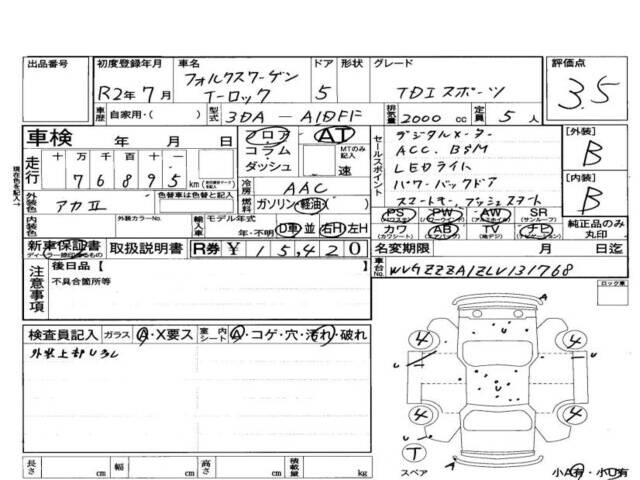 出品番号 初度登録年月 車名 ドア 形状 グレード 評価点
R2年7月 フォルクスワーゲン
T-ロック 5 TDI スポーツ 3.5
車歴 自家用・( ) 型式 3DA-A1DFF 排気量 2000 cc 定員 5 人
車検 年 月 日 フロア AT デジタルメーター [外装]
コラム MTのみ記入 ACC. BSM B
走行 十 万 千 百 十 一 ダッシュ 速 セールスポイント LEDライト
7 6 8 9 5 km 冷房 AAC パワーバックドア [内装]
外装色 アカII 色替車は色替と記入 燃料 ガソリン・軽油・( ) スマートキー.プッシュスタート B
内装色 外装カラーNo. 輸入車 モデル年式 PS PW AW SR
年・不明 D車 並 右H 左H カワ AB TV ナビ 純正品のみ丸印
(パワステ) (パワーウインド) (カワシート) (エアバック) (サンルーフ)
新車保証書 取扱説明書 R券 ¥ 15,420 名変期限 月 日迄
ディーラー捺印あるもの
車台No. WVGZZZA1ZLV131768
注意事項 後日品【
不具合箇所等 ロック車
検査員記入 ガラス A・X要ス 室内シート A・コゲ・穴・汚れ・破れ
外装上部USL
A
4 4
U U
4 4
U
T
スペア A
長さ cm 幅 cm 高さ cm 積載量 kg 小A有・小U有